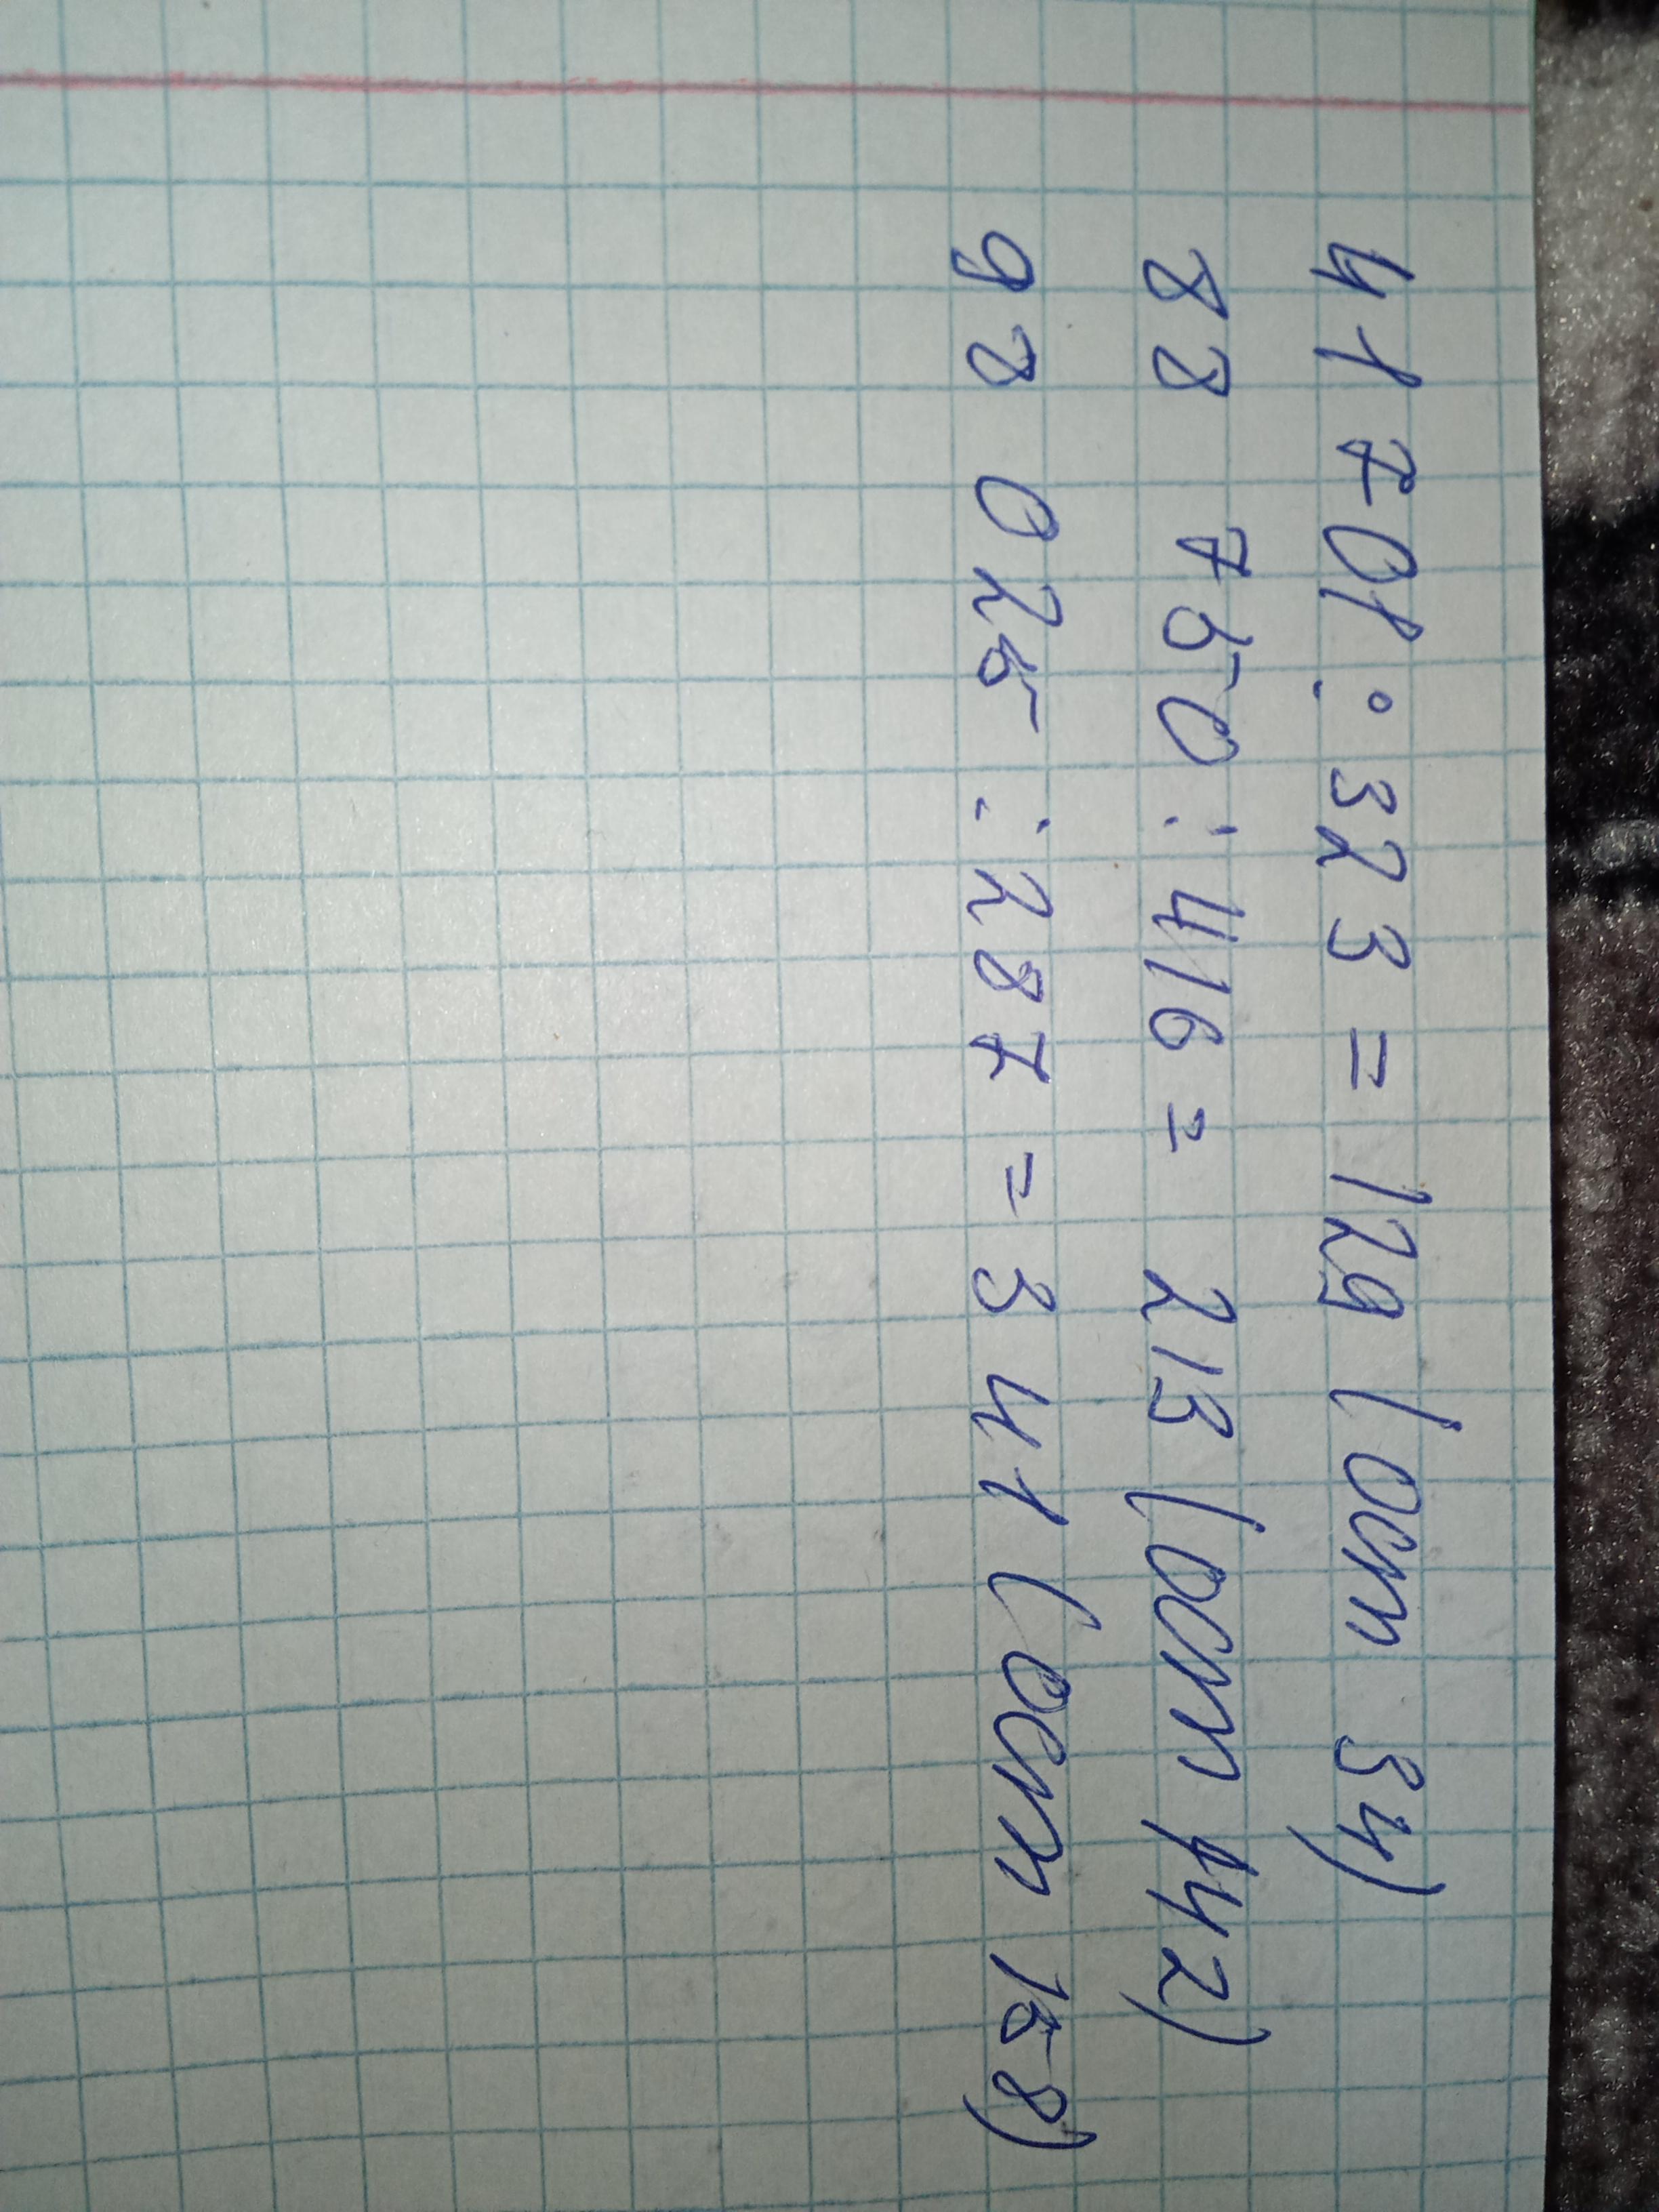 41 701 : 323 = 129 (ост 34)
88 750 : 416 = 213 (ост 142)
98 025 : 287 = 341 (ост 158)